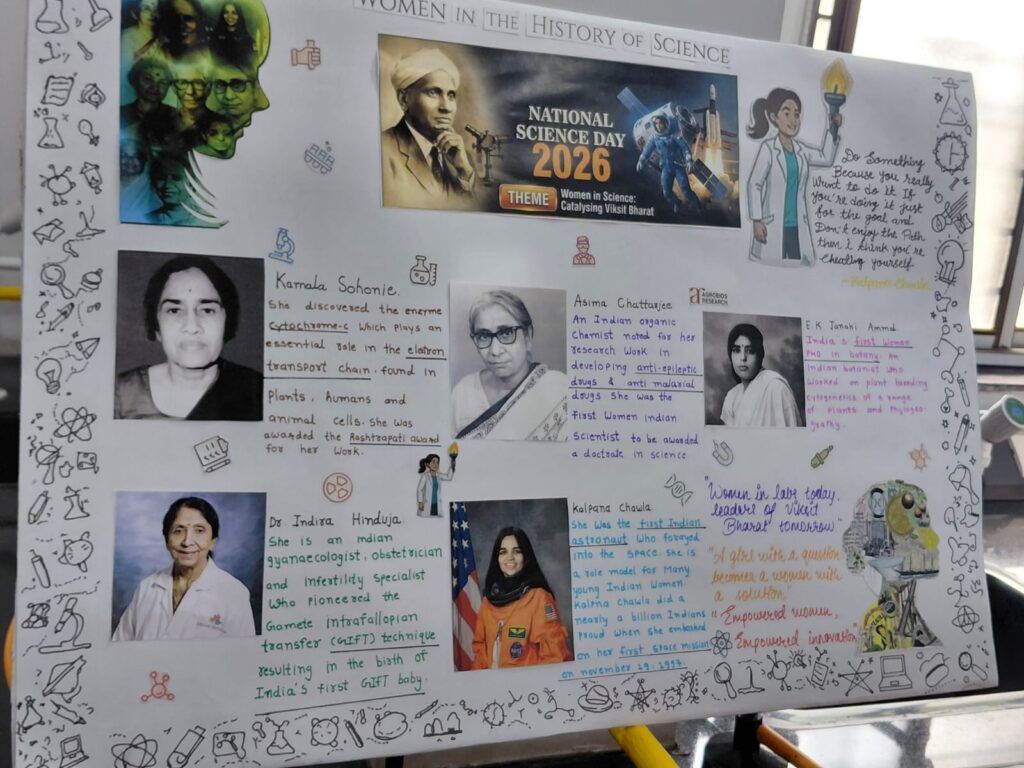 WOMEN IN THE HISTORY OF SCIENCE
NATIONAL
SCIENCE DAY
2026
THEME
Women in Science:
Catalysing Viksit Bharat
Do Something
Because you really
Want to do it If
you're doing it just
for the goal and
Don't enjoy the Path
then I think you're
Cheating yourself
- Kalpana Chawla
Kamala Sohonie.
She discovered the enzyme
Cytochrome-c which plays an
essential role in the
transport chain, found in
Plants, Humans and
animal cells. She was
awarded the Rashtrapati award
for her work.
Asima Chatterjee
An Indian organic
Chemist noted for her
research work in
developing anti-epileptic
drugs & anti malarial
drugs She was the
first Women Indian
Scientist to be awarded
a doctrate in science
AGROBIOS
RESEARCH
E.K Janaki Ammal
India's first Woman
PhD in botany. An
Indian botanist who
worked on plant breeding
cytogenetics of a range
of plants and Phytogeo-
graphy.
Dr. Indira Hinduja.
She is an Indian
gyanaecologist, obstetrician
and infertility specialist
who pioneered the
Gamete intrafallopian
transfer (GIFT) technique
resulting in the birth of
India's first GIFT baby.
Kalpana Chawla
She was the first Indian
astronaut who forayed
into the space. She is
a role model for Many
young Indian Women.
Kalpna Chawla did a
nearly a billion Indians
Proud when she embarked
on her first space mission
on november 19, 1997.
"Women in labs today,
leaders of Viksit
Bharat tomorrow"
"A girl with a question
becomes a women with
a solution"
"Empowered women,
Empowered innovation